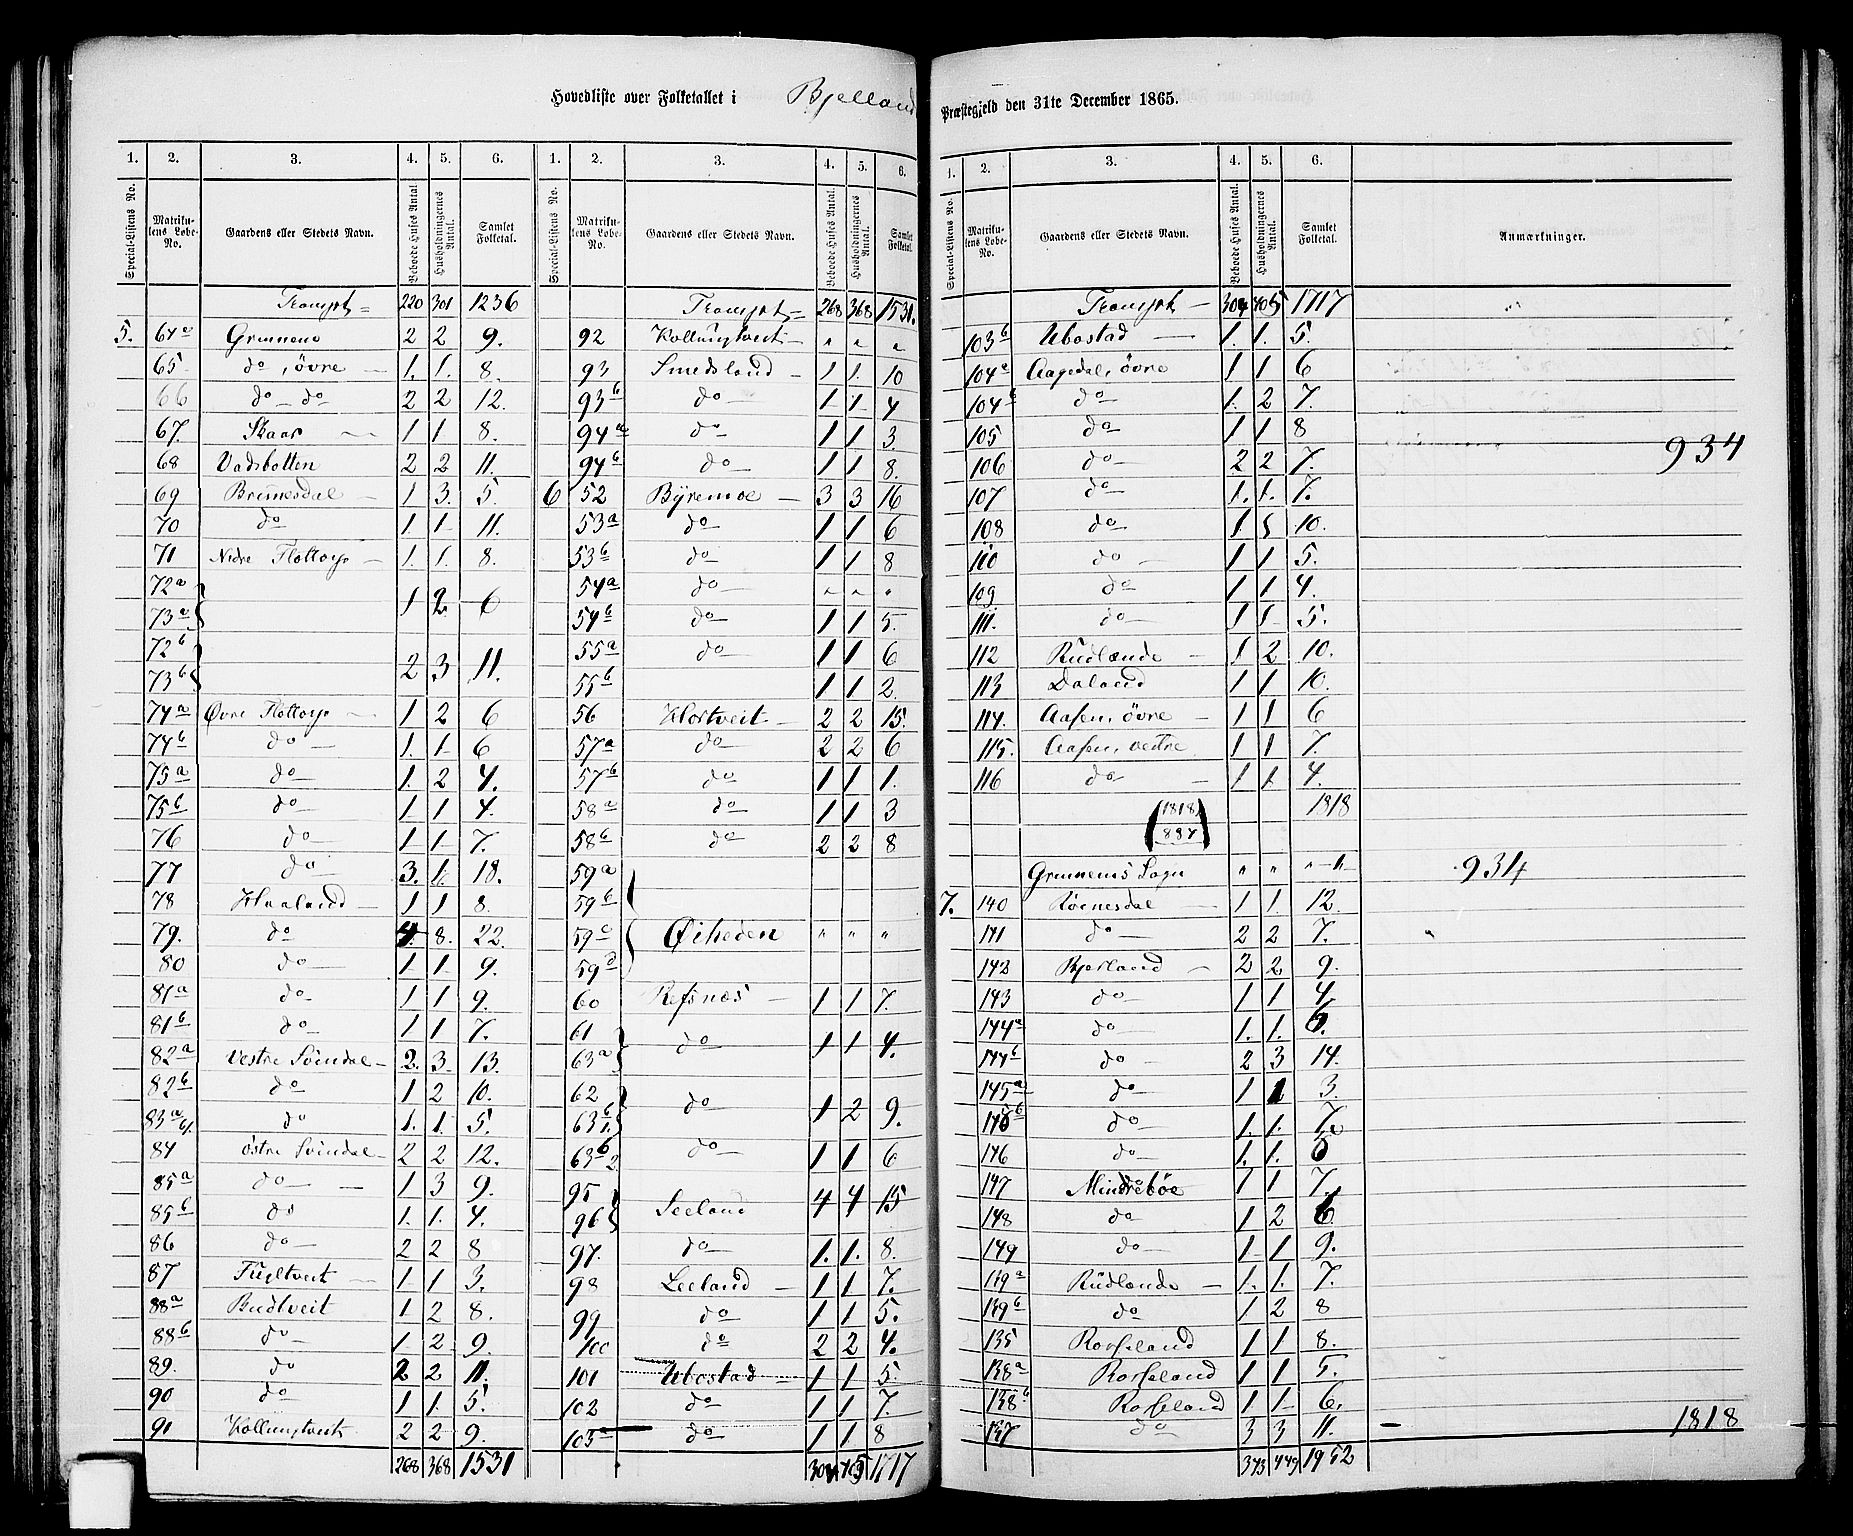 Hovedliste over Folketallet i Bjelland Præstegjeld den 31te December 1865.
1. 2. 3. 4. 5. 6. 1. 2. 3. 4. 5. 6.
Special-Listens No. Matrikulens Løbe-No. Gaardens eller Stedets Navn. Beboede Huses Antal. Husholdningernes Antal. Samlet Folketal. Special-Listens No. Matrikulens Løbe-No. Gaardens eller Stedets Navn. Beboede Huses Antal. Husholdningernes Antal. Samlet Folketal.
Transport = 220 301 1236
5. 64a Grummens 2 2 9.
65 do, øvre 1. 1. 8.
66 do do 2 2 12.
67. Skaar 1 1 8.
68 Vadsbotten 2 2 11.
69 Brimesdal 1 3. 5.
70 do 1 1 11.
71 Nedre Flottorp 1. 1. 8.
72a
73a 1 2 6
72b
73b 2 3 11.
74a Øvre Flottorp 1 2 6
74b do 1. 1 6
75a do 1. 2 4.
75b do 1 1 4.
76 do 1 1 7.
77 do 3. 1. 18.
78 Haaland 1 1 8.
79. do 4. 8. 22.
80 do 1 1 9.
81a do 1 1 9.
81b do 1 1 7.
82a Vestre Svindal 2. 3. 13.
82b do 1 2 10.
83a do 1. 1. 5.
84 Østre Svindal 2 2 12.
85a do 1 3 9.
85b do 1. 1. 4.
86 do 2 2 8
87 Fugltveit 1 1 3.
88a Budtveit 1 2 8.
88b do 1 2 9.
89. do 2 2 11.
90 do 1 1. 5.
91 Kollungtveit 2 2 9.
268 368 1531
Transport = 268 368 1531.
92 Kollungtveit „ „ „
93 Smedsland 1 1. 10
93b do 1 1 4
94a do 1 1 3.
94b do 1 1 8.
6 52 Byremoe 3 3 16
53a do 1 1 6
53b do 1 1 8
54a do „ „ „
54b do 1 1 5.
55a do 1 1 6
55b 1 1 2.
56 Hortveit 2 2 15.
57a do 2 2 6
57b do 1 1 1.
58a do 1 1 3
58b do 2 2 8
59a
59b
59c Øiheden „ „ „
59d
60 Refsnæs 1 1 7.
61
63a do 1 1 4.
62
63b1. do 1 2 9.
63b2 do 1 1 6
95
96 Seeland 4 4 15
97. do 1. 1. 8.
98 Leeland 1 1 7.
99 do 1 1 5.
100 do 2 2 4.
101 Ubostad 1 1 5.
102 do 1 1 7.
103a do 1 1 8
304 405 1717
1. 2. 3. 4. 5. 6.
Special-Listens No. Matrikulens Løbe-No. Gaardens eller Stedets Navn. Beboede Huses Antal. Husholdningernes Antal. Samlet Folketal. Anmærkninger.
Transport 304 405 1717
103b Ubostad 1. 1. 5.
104a Aagedal, øvre 1 1 6
104b do 1. 2 7.
105 do 1 1 8
934
106 do 2 2 7.
107 do 1. 1. 7.
108 do 1. 1 10.
110 do 1 1 5.
109 do 1 1 4.
111. do 1 1 5.
112 Rudlende 1 2 10.
113 Daland 1 1 10.
114. Aasen, øvre 1 1 6
115. Aasen, vestre 1 1 7.
116 do 1 1. 4.
(1818) 1818
(884)
Grummens Sogn „ „ „ 934
7. 140 Røinesdal 1 1. 12.
141 do 2 2 7.
142 Bjerland 2 2 9.
143 do 1 1 4
144a do 1. 1. 6.
144b do 2 3 14.
145a do 1 1 3.
145b do 1. 1. 7.
146 do 1. 1. 6
147 Mindrebøe 1 1 7.
148 do 1 2 6.
149 do 1 1 9.
139a Rüdlende 1. 1. 7.
139b do 1 2 8
135 Rosseland 1 1 8.
138a Rosseland 1 1 5.
138b Rosseland 1 1 6.
137 do 3 3 11.
1818
343 449 1952